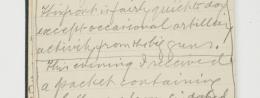 This front is fairly quiet to day
except occasional artillery
activity from the big guns.
This evening I received
a packet containing
dated